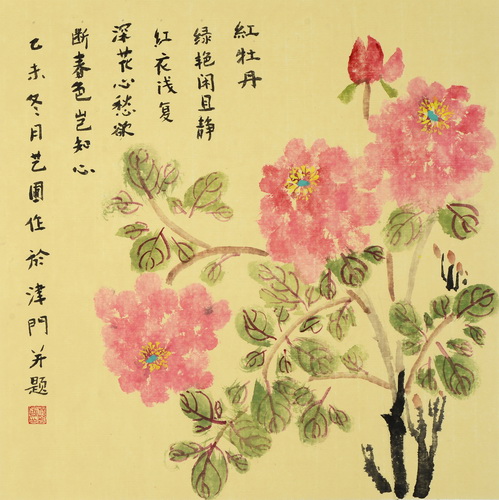 紅牡丹
绿艳闲且静
紅衣浅复
深花心愁欲
断春色岂知心
乙未冬月艺圃作於津門并題